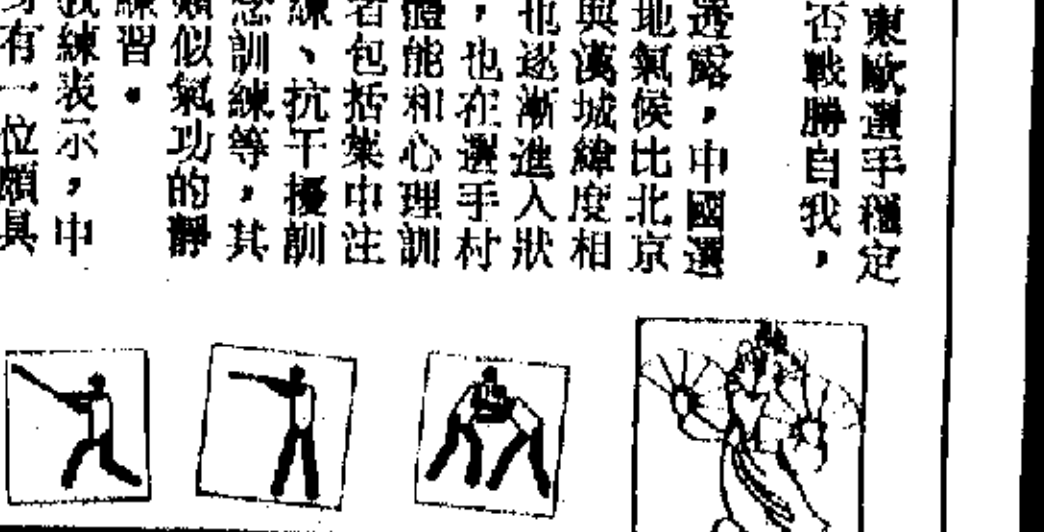 東歐選手穩定
否戰勝自我，
透露，中國選
地氣候比北京
與漢城緯度相
也逐漸進入狀
，也在選手村
體能和心理訓
者包括集中注
練、抗干擾訓
念訓練等，其
類似氣功的靜
練習。
我練表示，中
有一位頗具